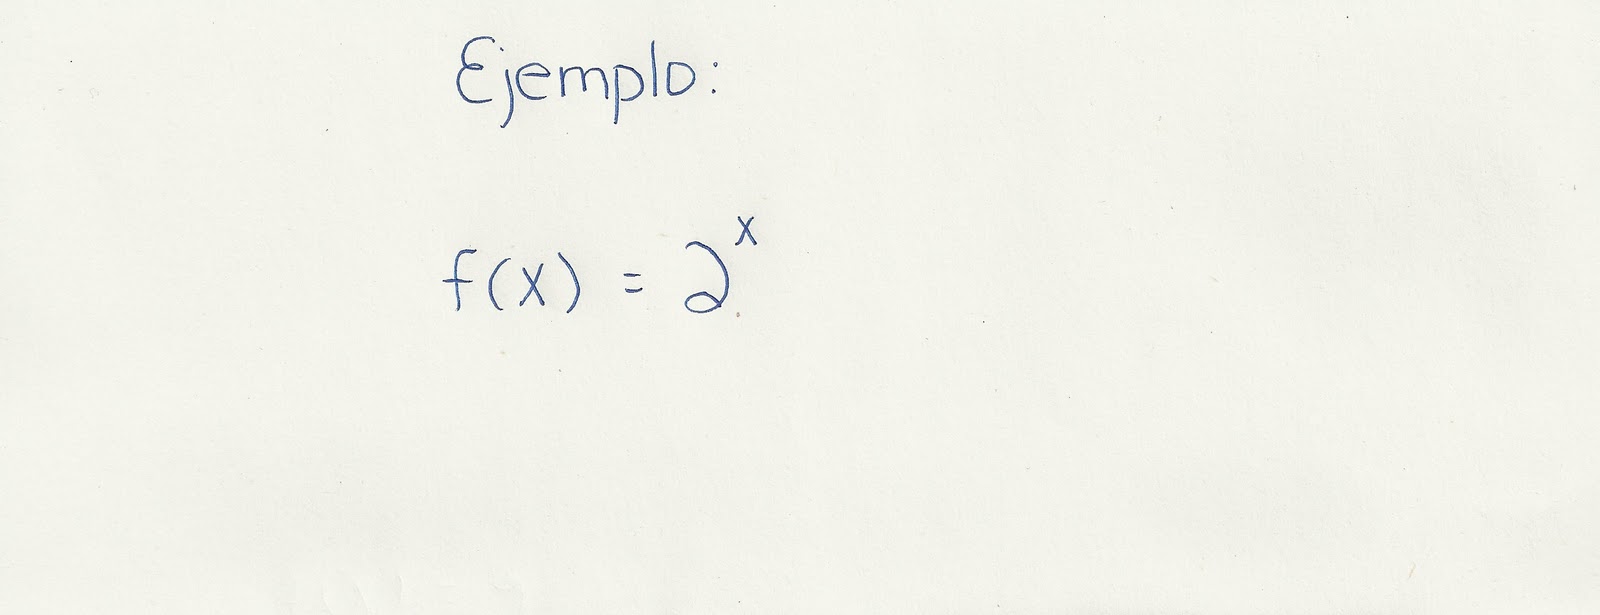 Ejemplo:
f(x) = 2^x